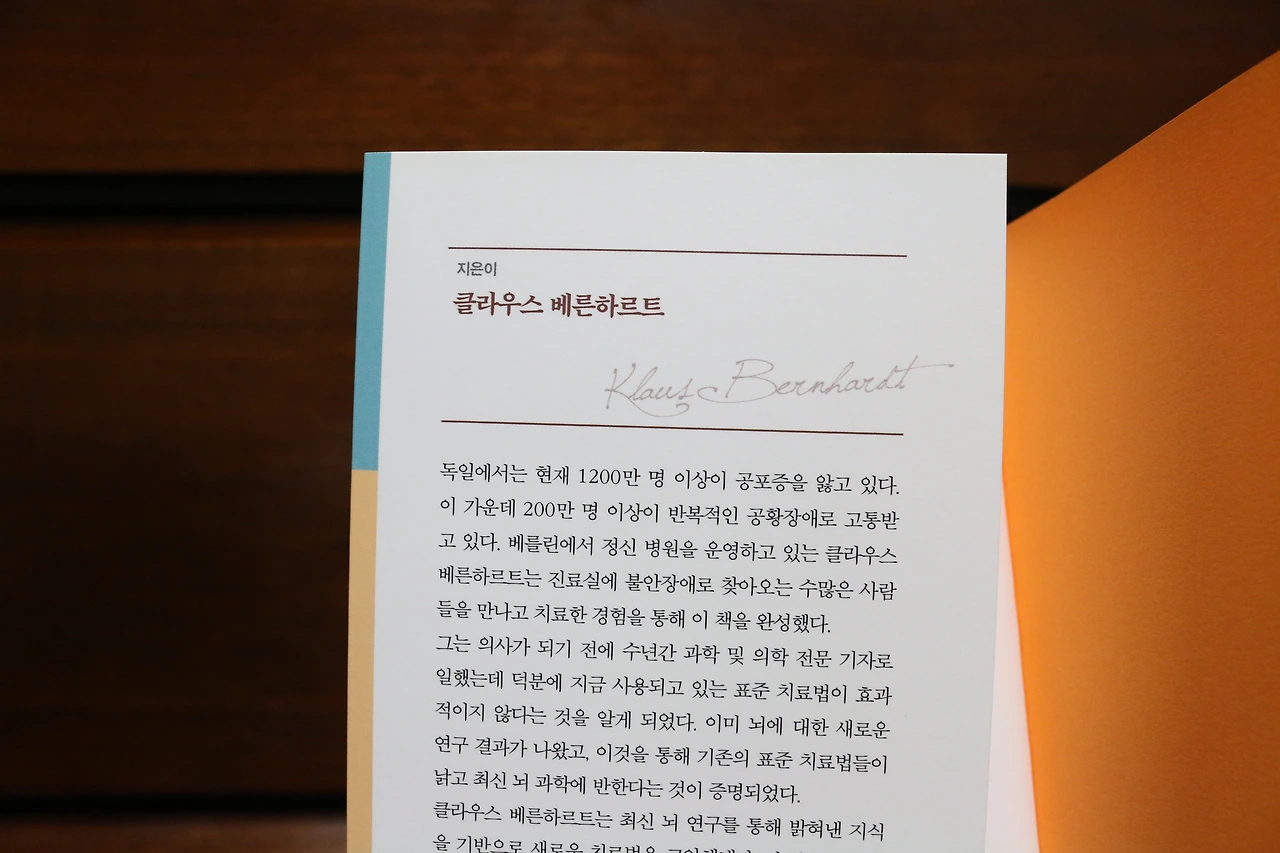 지은이
클라우스 베른하르트
Klaus Bernhardt
독일에서는 현재 1200만 명 이상이 공포증을 앓고 있다.
이 가운데 200만 명 이상이 반복적인 공황장애로 고통받
고 있다. 베를린에서 정신 병원을 운영하고 있는 클라우스
베른하르트는 진료실에 불안장애로 찾아오는 수많은 사람
들을 만나고 치료한 경험을 통해 이 책을 완성했다.
그는 의사가 되기 전에 수년간 과학 및 의학 전문 기자로
일했는데 덕분에 지금 사용되고 있는 표준 치료법이 효과
적이지 않다는 것을 알게 되었다. 이미 뇌에 대한 새로운
연구 결과가 나왔고, 이것을 통해 기존의 표준 치료법들이
낡고 최신 뇌 과학에 반한다는 것이 증명되었다.
클라우스 베른하르트는 최신 뇌 연구를 통해 밝혀낸 지식
을 기반으로 새로운 치료법을